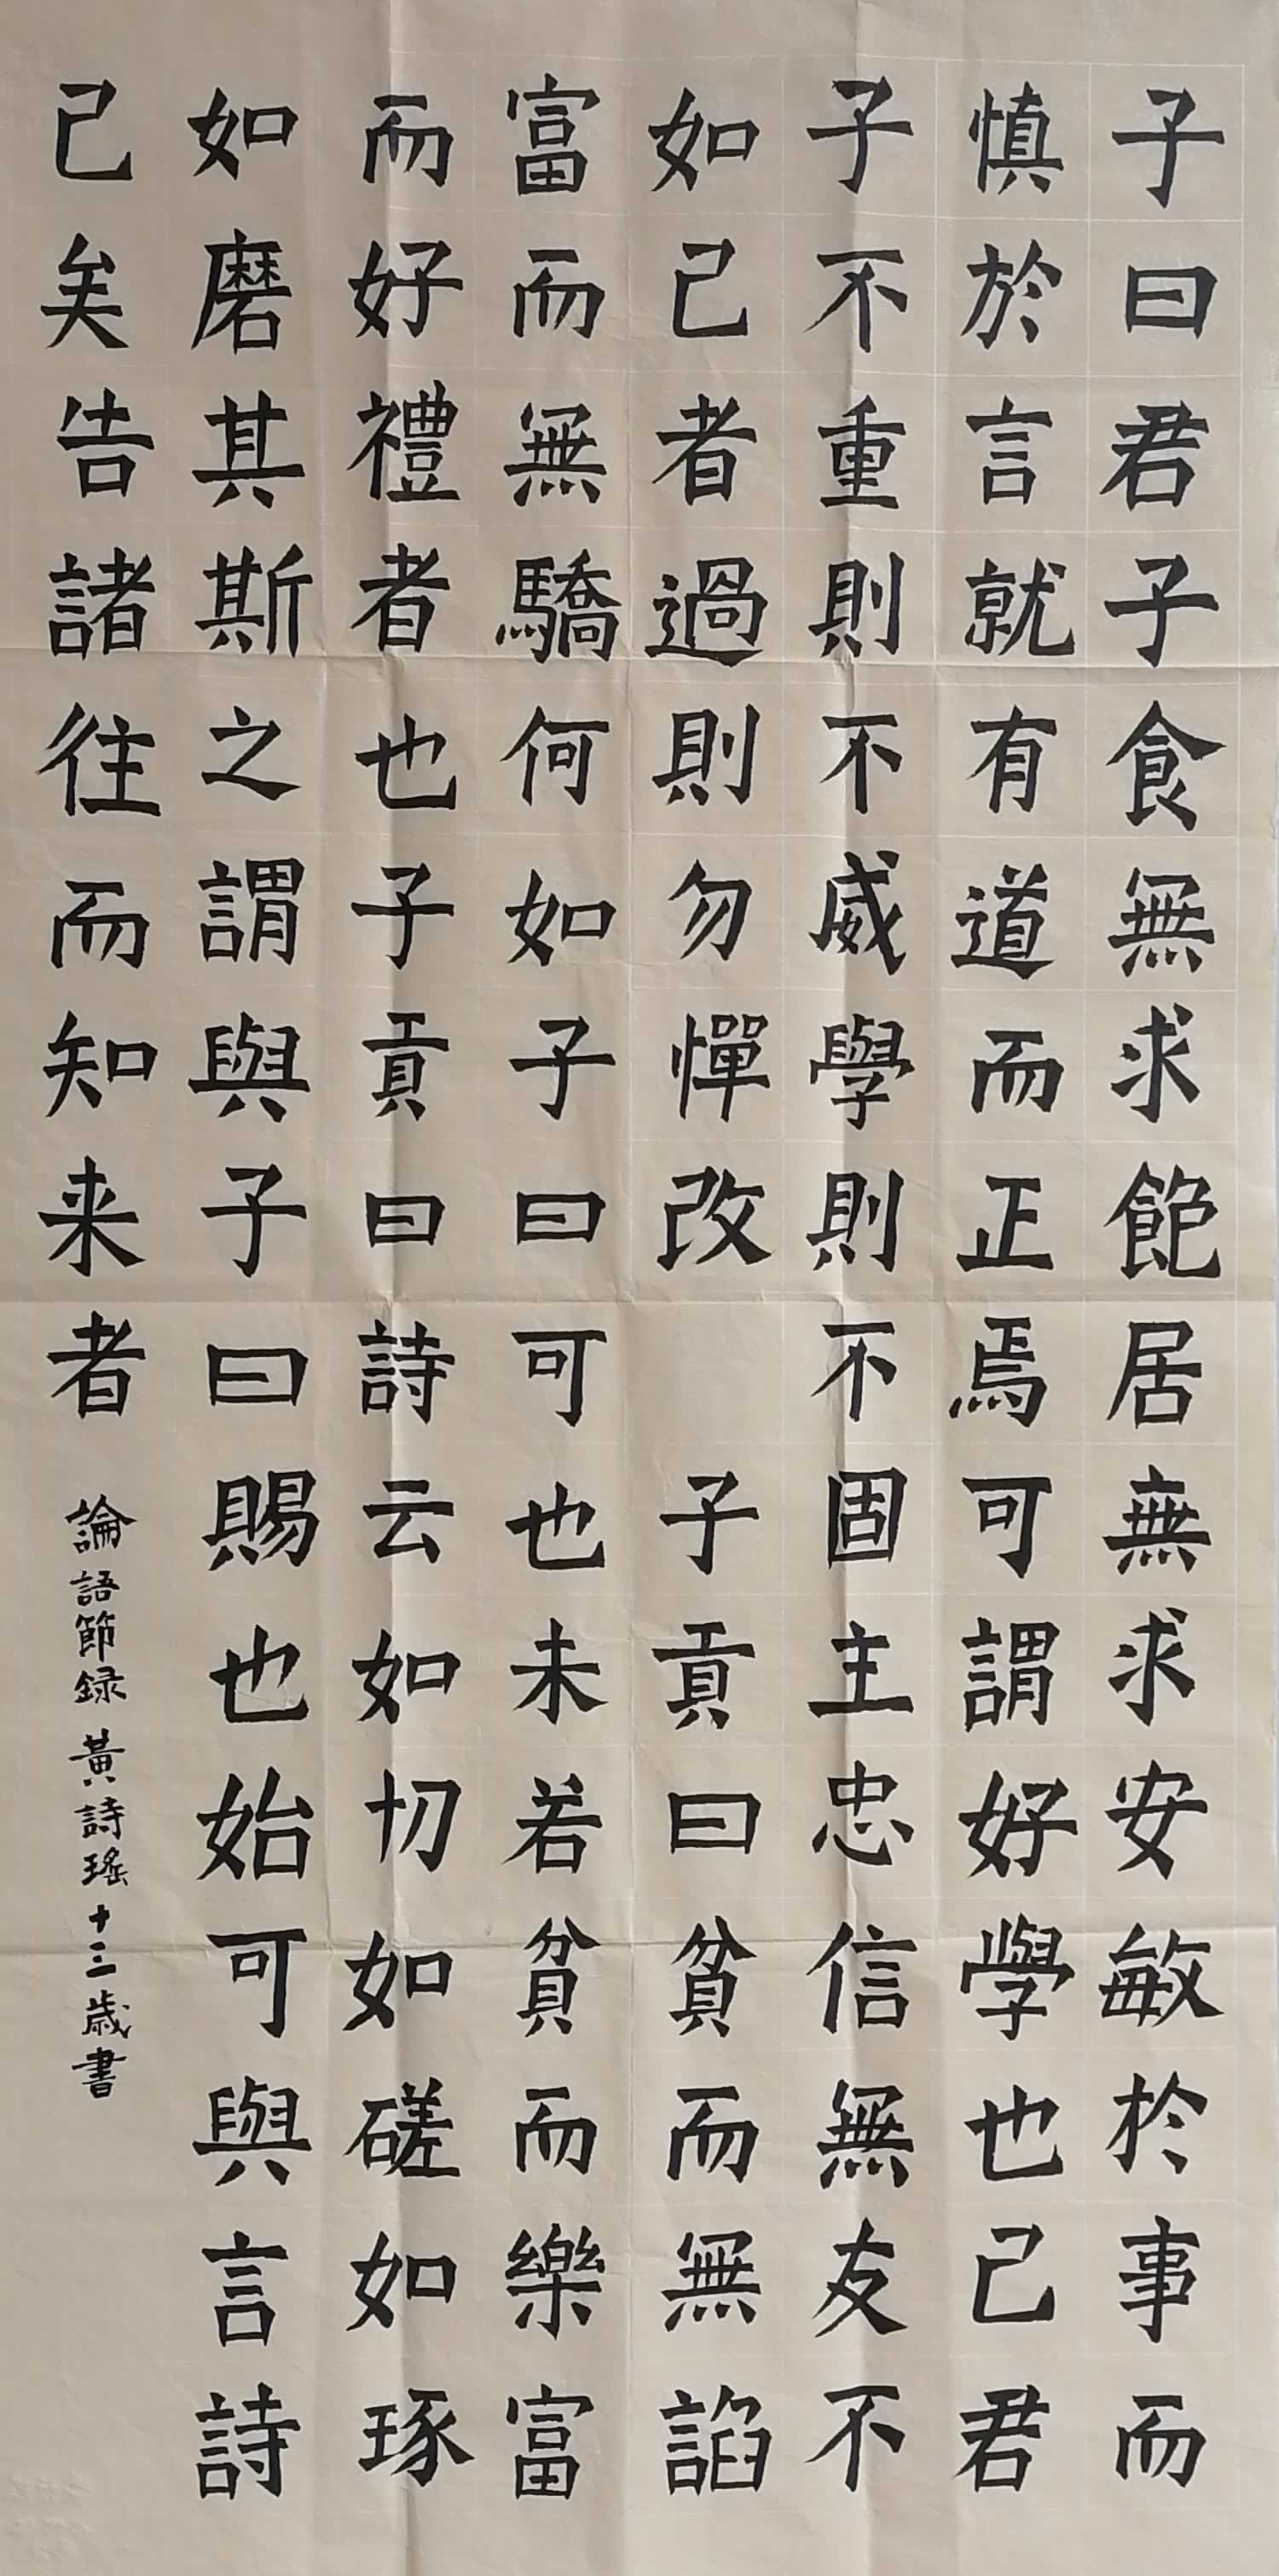 子曰君子食無求飽居無求安敏於事而
慎於言就有道而正焉可謂好學也已君
子不重則不威學則不固主忠信無友不
如己者過則勿憚改 子貢曰貧而無諂
富而無驕何如子曰可也未若貧而樂富
而好禮者也子貢曰詩云如切如磋如琢
如磨其斯之謂與子曰賜也始可與言詩
已矣告諸往而知来者
論語節録 黃詩瑤十三歲書